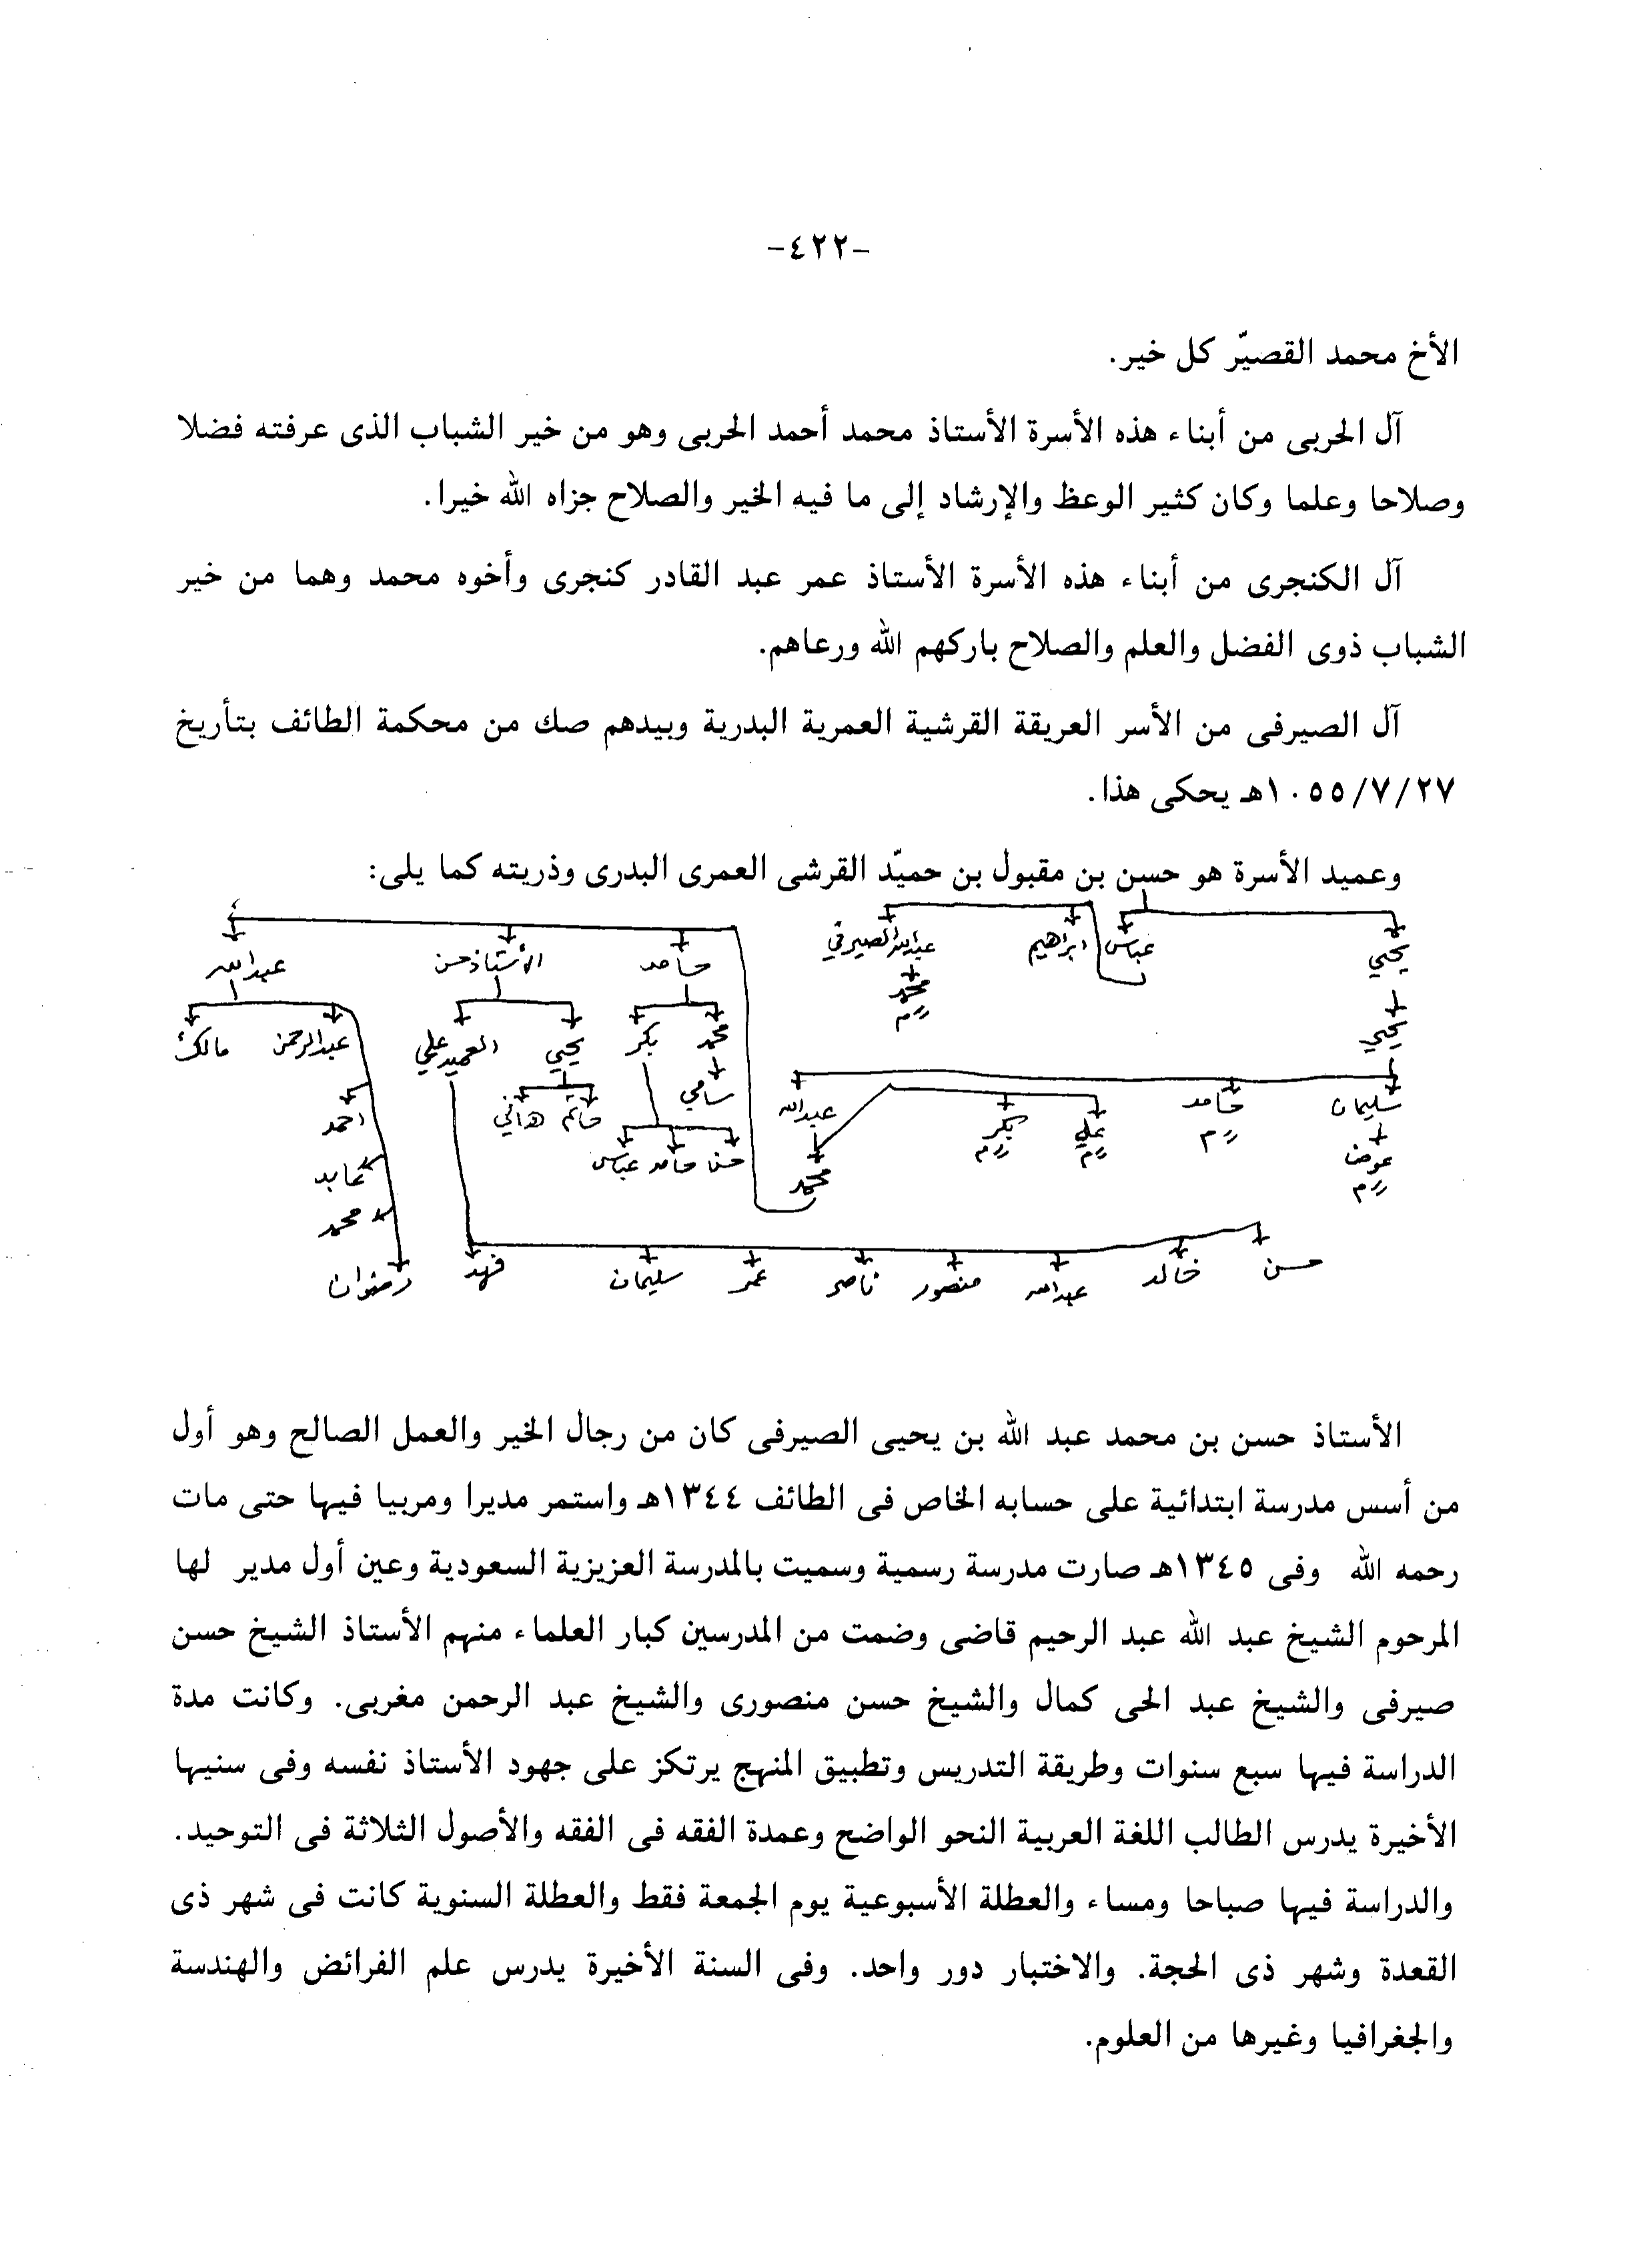 -٤٢٢-
الأخ محمد القصيّر كل خير.
آل الحربى من أبناء هذه الأسرة الأستاذ محمد أحمد الحربى وهو من خير الشباب الذى عرفته فضلا
وصلاحا وعلما وكان كثير الوعظ والإرشاد إلى ما فيه الخير والصلاح جزاه الله خيرا.
آل الكنجرى من أبناء هذه الأسرة الأستاذ عمر عبد القادر كنجرى وأخوه محمد وهما من خير
الشباب ذوى الفضل والعلم والصلاح باركهم الله ورعاهم.
آل الصيرفى من الأسر العريقة القرشية العمرية البدرية وبيدهم صك من محكمة الطائف بتأريخ
١٠٥٥/٧/٢٧هـ يحكى هذا.
وعميد الأسرة هو حسن بن مقبول بن حميّد القرشى العمرى البدرى وذريته كما يلى:
يحيي عباس ابراهيم عبدالله الصيرفي
محمد
م
حامد الأستاذ حسن عبدالله
يحيي
محمد بكر يحيي العميد علي عبدالرحمن مالك
سليمان حامد علي بكر عبدالله
سامي حاتم هاني احمد
عوض م م م
م
محمد حسن حامد عباس عابد
محمد
حسن خالد عبدالله منصور ناصر عمر سليمان فهد رضوان
الأستاذ حسن بن محمد عبد الله بن يحيى الصيرفى كان من رجال الخير والعمل الصالح وهو أول
من أسس مدرسة ابتدائية على حسابه الخاص فى الطائف ١٣٤٤هـ واستمر مديرا ومربيا فيها حتى مات
رحمه الله وفى ١٣٤٥هـ صارت مدرسة رسمية وسميت بالمدرسة العزيزية السعودية وعين أول مدير لها
المرحوم الشيخ عبد الله عبد الرحيم قاضى وضمت من المدرسين كبار العلماء منهم الأستاذ الشيخ حسن
صيرفى والشيخ عبد الحى كمال والشيخ حسن منصورى والشيخ عبد الرحمن مغربى. وكانت مدة
الدراسة فيها سبع سنوات وطريقة التدريس وتطبيق المنهج يرتكز على جهود الأستاذ نفسه وفى سنيها
الأخيرة يدرس الطالب اللغة العربية النحو الواضح وعمدة الفقه فى الفقه والأصول الثلاثة فى التوحيد.
والدراسة فيها صباحا ومساء والعطلة الأسبوعية يوم الجمعة فقط والعطلة السنوية كانت فى شهر ذى
القعدة وشهر ذى الحجة. والاختبار دور واحد. وفى السنة الأخيرة يدرس علم الفرائض والهندسة
والجغرافيا وغيرها من العلوم.